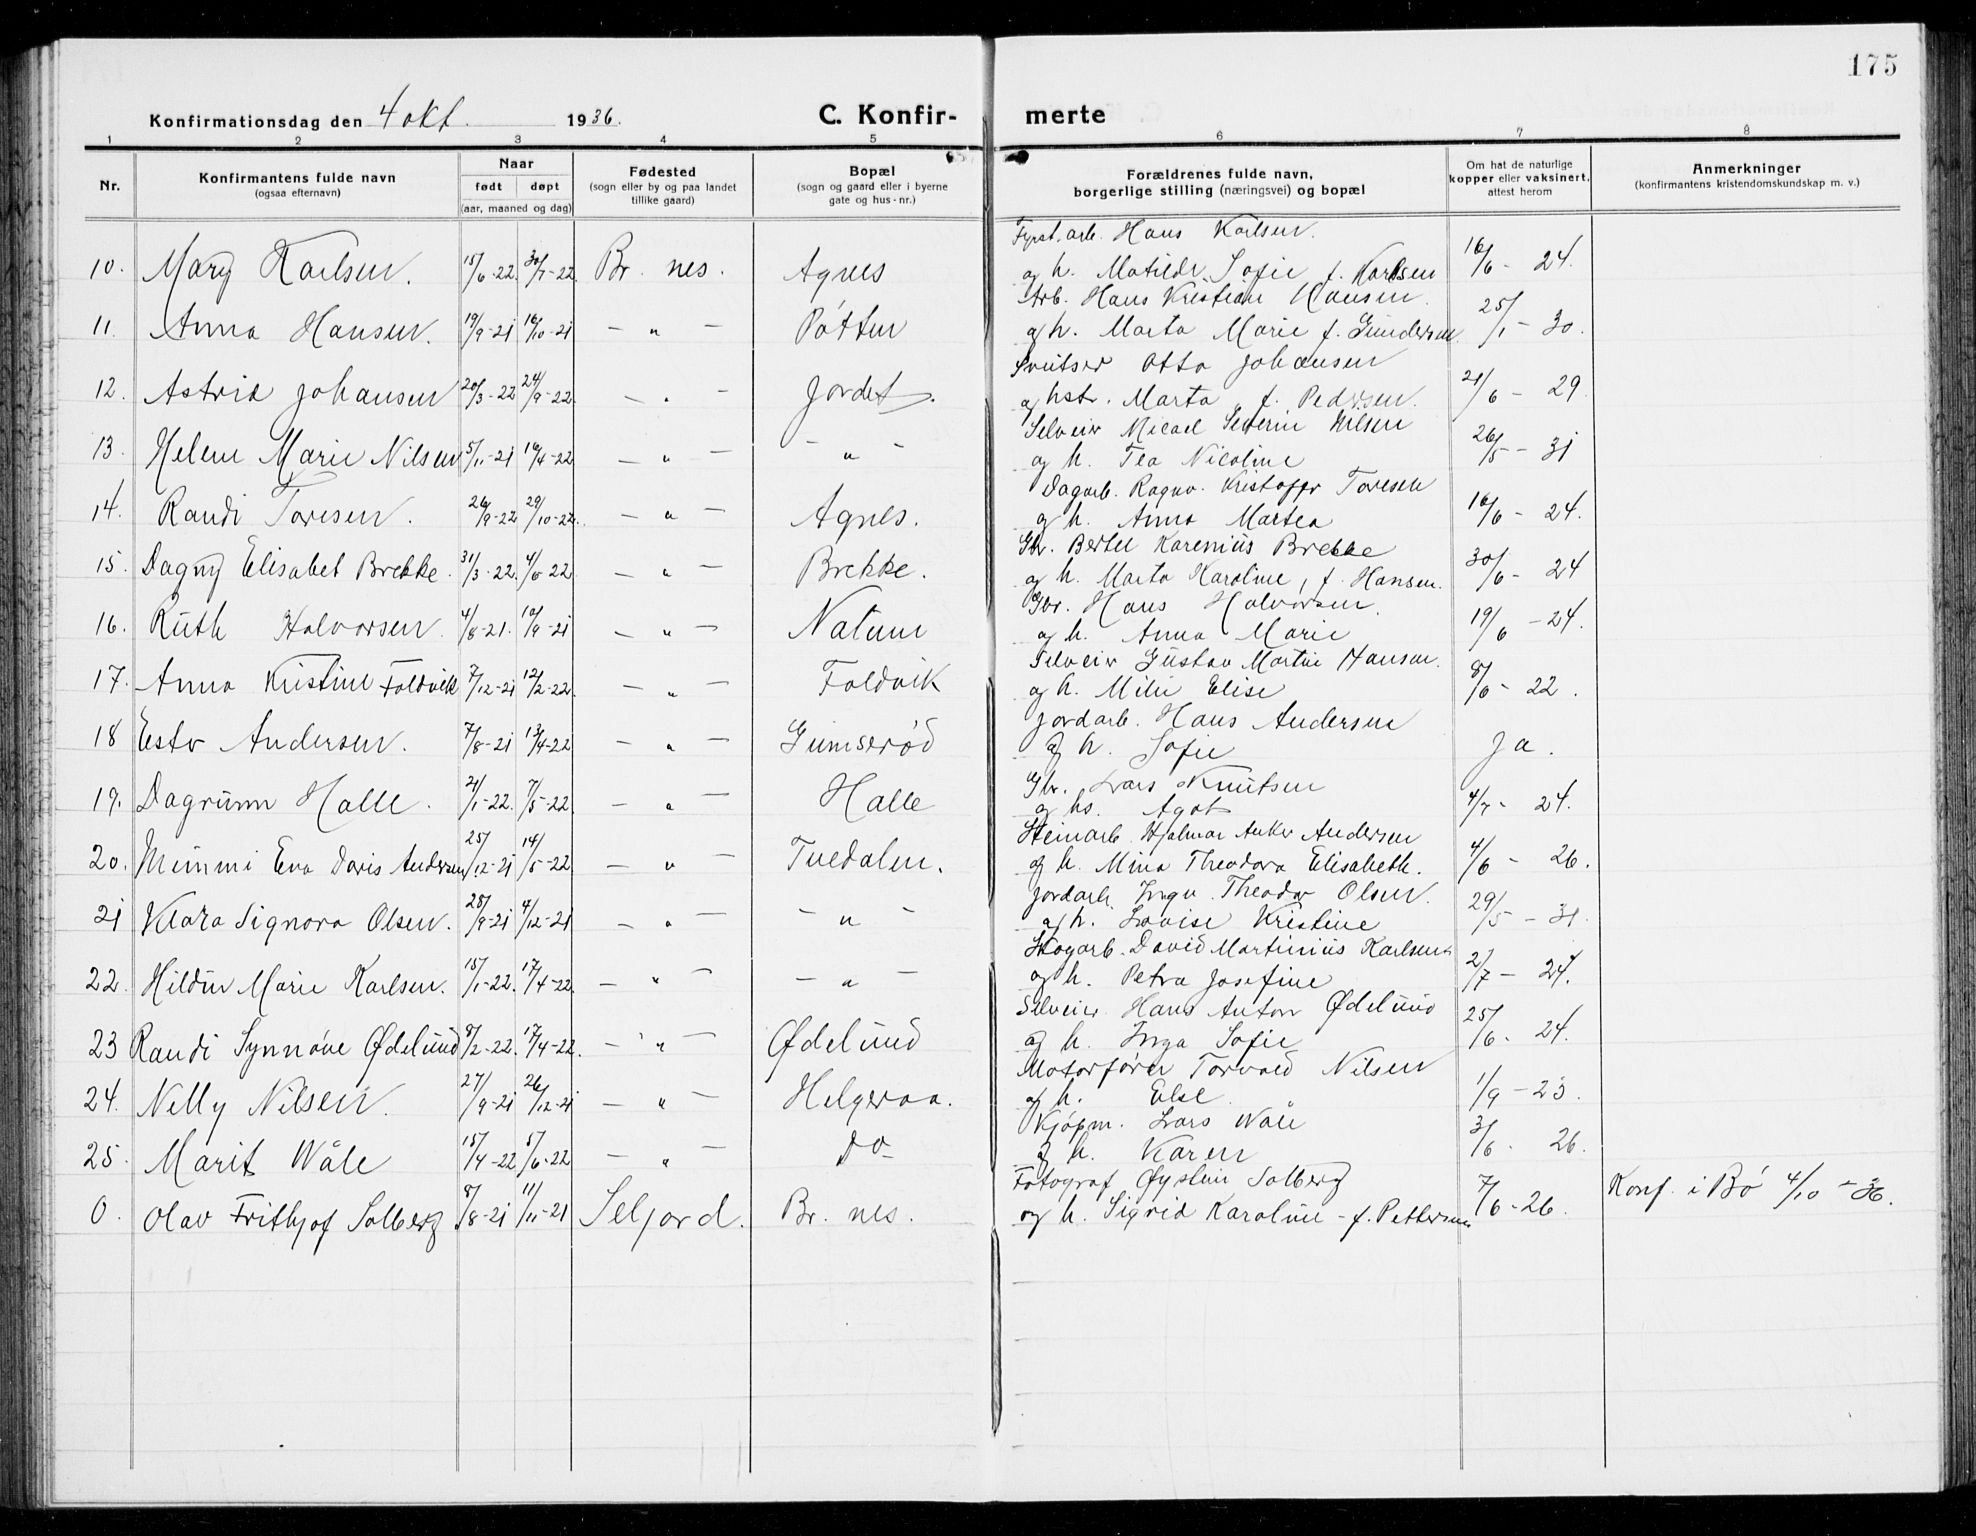 175
Konfirmationsdag den 4 okt. 1936. C. Konfir- merte
1 2 3 4 5 6 7 8
Nr. Konfirmantens fulde navn (ogsaa efternavn) Naar født døpt (aar, maaned og dag) Fødested (sogn eller by og paa landet tillike gaard) Bopæl (sogn og gaard eller i byerne gate og hus-nr.) Forældrenes fulde navn, borgerlige stilling (næringsvei) og bopæl Om hat de naturlige kopper eller vaksinert, attest herom Anmerkninger (konfirmantens kristendomskundskap m. v.)
Hans Karlsen.
10. Mary Karlsen. 15/6-22. 30/7-22. Br. nes. Agnes og h. Matilde Sofie f. Karlsen 16/6 - 24.
Arb. Hans Kristian Hansen.
11. Anna Hansen. 19/9-21 16/10-21 - " - Pøtten og h. Marta Marie f. Gundersen. 25/1 - 30.
Otto Johansen
12. Astrid Johansen 20/3-22 24/9-22. - " - Jordet. og hstr. Marta f. Pedersen. 21/6 - 29
Selveier Micael Severin Nilsen
13. Helene Marie Nilsen 5/11-21 16/4-22. - " - - " - og h. Tea Nicoline 26/5 - 31
Dagarb. Ragnv. Kristoffer Toresen
14. Randi Toresen. 26/9-22 29/10-22. - " - Agnes. og h. Anna Martea 16/6 - 24.
Gbr. Bertel Karenius Brekke
15. Dagny Elisabet Brekke. 31/3-22. 4/6 22 - " - Brekke. og h. Marta Karoline, f. Hansen. 30/6 - 24
Gbr. Hans Halvorsen.
16. Ruth Halvorsen. 4/8-21. 10/9-21 - " - Nalum og h. Anna Marie 19/6 - 24.
Selveier Gustav Martin Hansen.
17. Anna Kristine Foldvik 7/12-21 12/2-22. - " - Foldvik og h. Milie Elise 8/6 - 22.
Jordarb. Hans Andersen
18 Ester Andersen. 7/8-21 13/4-22 - " - Gumserød og h. Sofie Ja.
Gbr. Lars Knutsen
19. Dagrunn Halle. 21/1-22. 7/5-22 - " - Halle og hs. Agot 4/7 - 24.
Steinarb. Hjalmar Anker Andersen
20. Mimmi Eva Doris Andersen 25/12-21 14/5-22 - " - Tuedalen. og h. Mina Theodora Elisabeth. 4/6 - 26.
Jordarb. Theodor Olsen.
21 Klara Signora Olsen. 25/9-21 4/12-21 - " - - " - og h. Lovise Kristine 29/5 - 31.
Skogarb. David Martinius Karlsen
22. Hildur Marie Karlsen. 15/1-22. 17/4-22. - " - - " - og h. Petra Josefine 2/7 - 24.
Selveier Hans Anton Ødelund
23 Randi Synnøve Ødelund 8/2-22. 17/4-22. - " - Ødelund og h. Inga Sofie 25/6 - 24.
Motorfører Torvald Nilsen
24. Nelly Nilsen. 27/9-21 26/12-21 - " - Helgeroa. og h. Else 1/9 - 23.
Kjøpm. Lars Wåle
25. Marit Wåle 15/4-22 5/6-22 - " - Do og h. Karen 3/6 - 26.
Fotograf Øystein Solberg
0. Olav Frithjof Solberg. 8/8-21 11/11-21 Seljord. Br. nes. og h. Sigrid Karoline - f. Pettersen 7/6-26. Konf. i Bø 4/10 - 36.